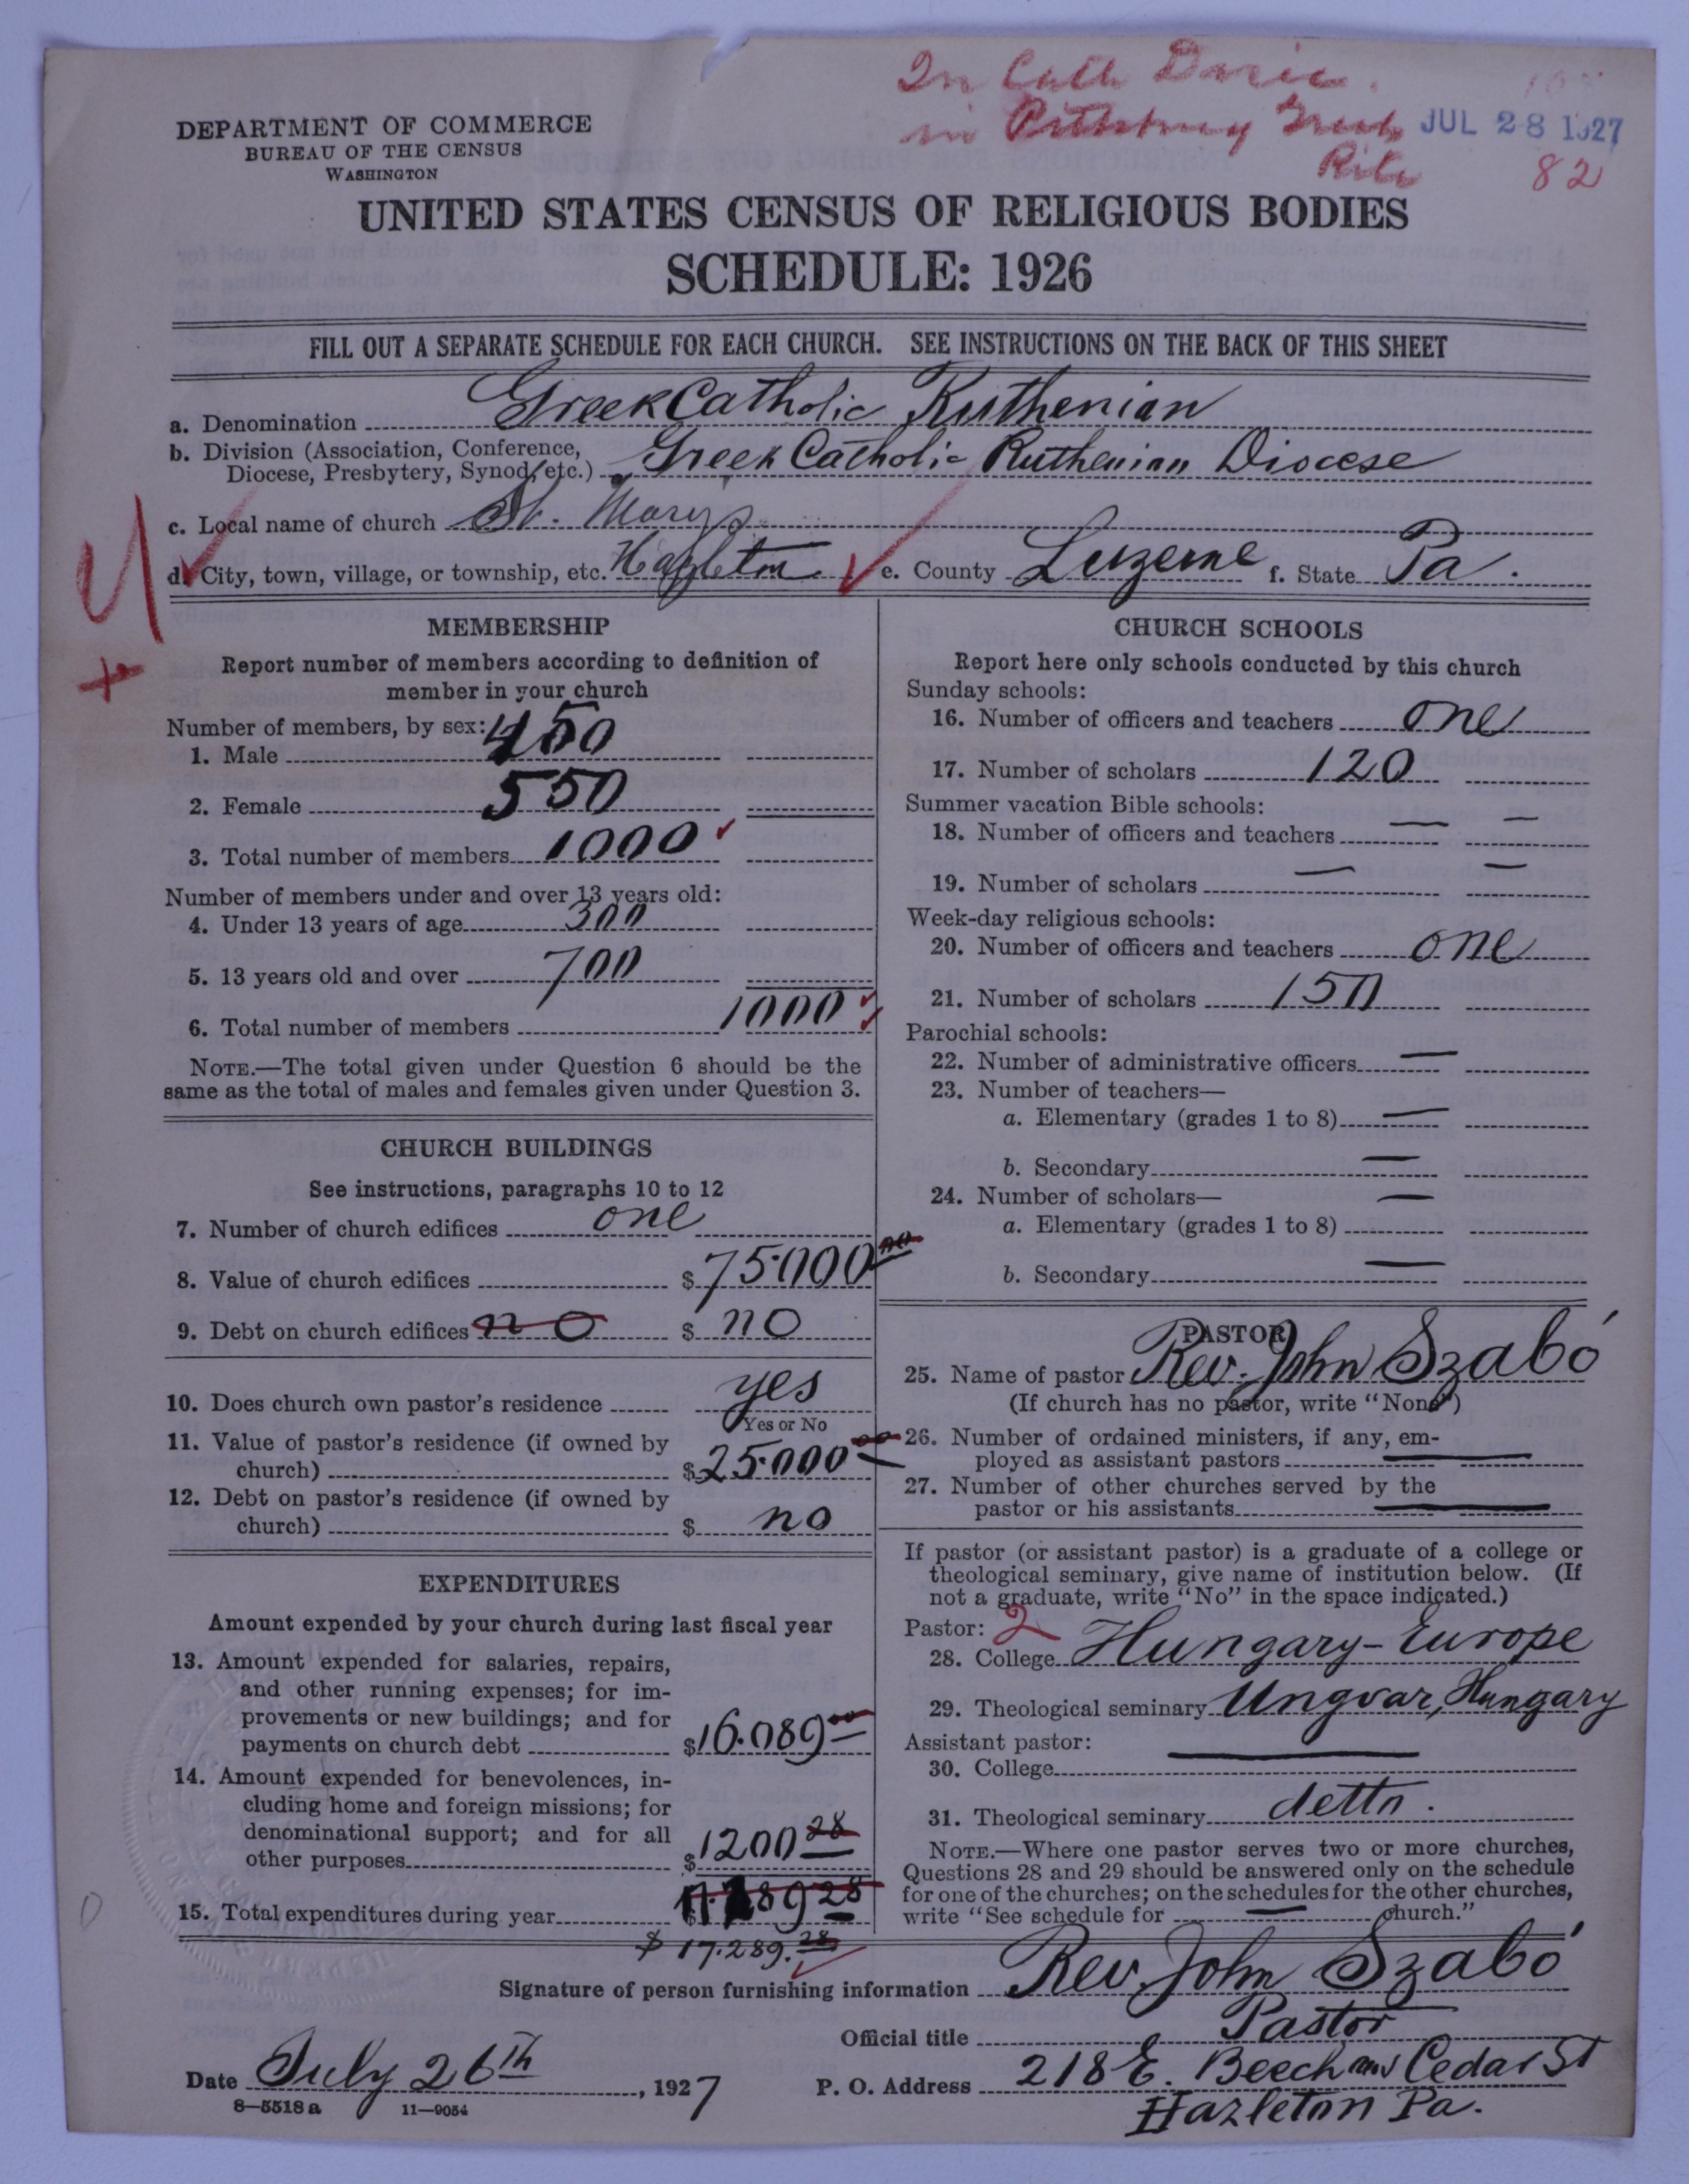 In Cath Dioce.
in Pittsburg Greek
Rite
JUL 28 1927
82
DEPARTMENT OF COMMERCE
BUREAU OF THE CENSUS
WASHINGTON
UNITED STATES CENSUS OF RELIGIOUS BODIES
SCHEDULE: 1926
FILL OUT A SEPARATE SCHEDULE FOR EACH CHURCH. SEE INSTRUCTIONS ON THE BACK OF THIS SHEET
a. Denomination Greek Catholic Ruthenian
b. Division (Association, Conference,
Diocese, Presbytery, Synod, etc.) Greek Catholic Ruthenian Diocese
c. Local name of church St. Mary's
d. City, town, village, or township, etc. Hazleton e. County Luzerne f. State Pa.
MEMBERSHIP
Report number of members according to definition of
member in your church
Number of members, by sex:
1. Male 450
2. Female 550
3. Total number of members 1000
Number of members under and over 13 years old:
4. Under 13 years of age 300
5. 13 years old and over 700
6. Total number of members 1000
NOTE.—The total given under Question 6 should be the
same as the total of males and females given under Question 3.
CHURCH BUILDINGS
See instructions, paragraphs 10 to 12
7. Number of church edifices one
8. Value of church edifices $ 75.000 00
9. Debt on church edifices no $ no
10. Does church own pastor's residence yes
Yes or No
11. Value of pastor's residence (if owned by
church) $ 25.000 00
12. Debt on pastor's residence (if owned by
church) $ no
EXPENDITURES
Amount expended by your church during last fiscal year
13. Amount expended for salaries, repairs,
and other running expenses; for im-
provements or new buildings; and for
payments on church debt $ 16.089 00
14. Amount expended for benevolences, in-
cluding home and foreign missions; for
denominational support; and for all
other purposes $ 1200 28
15. Total expenditures during year $ 17.289 28
$ 17.289.28
CHURCH SCHOOLS
Report here only schools conducted by this church
Sunday schools:
16. Number of officers and teachers one
17. Number of scholars 120
Summer vacation Bible schools:
18. Number of officers and teachers — —
19. Number of scholars — —
Week-day religious schools:
20. Number of officers and teachers one
21. Number of scholars 150
Parochial schools:
22. Number of administrative officers —
23. Number of teachers—
a. Elementary (grades 1 to 8) —
b. Secondary —
24. Number of scholars— —
a. Elementary (grades 1 to 8)
b. Secondary —
PASTOR
25. Name of pastor Rev. John Szabó
(If church has no pastor, write "None")
26. Number of ordained ministers, if any, em-
ployed as assistant pastors —
27. Number of other churches served by the
pastor or his assistants —
If pastor (or assistant pastor) is a graduate of a college or
theological seminary, give name of institution below. (If
not a graduate, write "No" in the space indicated.)
Pastor: 2
28. College Hungary - Europe
29. Theological seminary Ungvar, Hungary
Assistant pastor:
30. College —
31. Theological seminary detto.
NOTE.—Where one pastor serves two or more churches,
Questions 28 and 29 should be answered only on the schedule
for one of the churches; on the schedules for the other churches,
write "See schedule for — church."
Signature of person furnishing information Rev. John Szabó
Official title Pastor
Date July 26th, 1927 P. O. Address 218 E. Beech and Cedar St
Hazleton Pa.
8—5518 a 11—9054